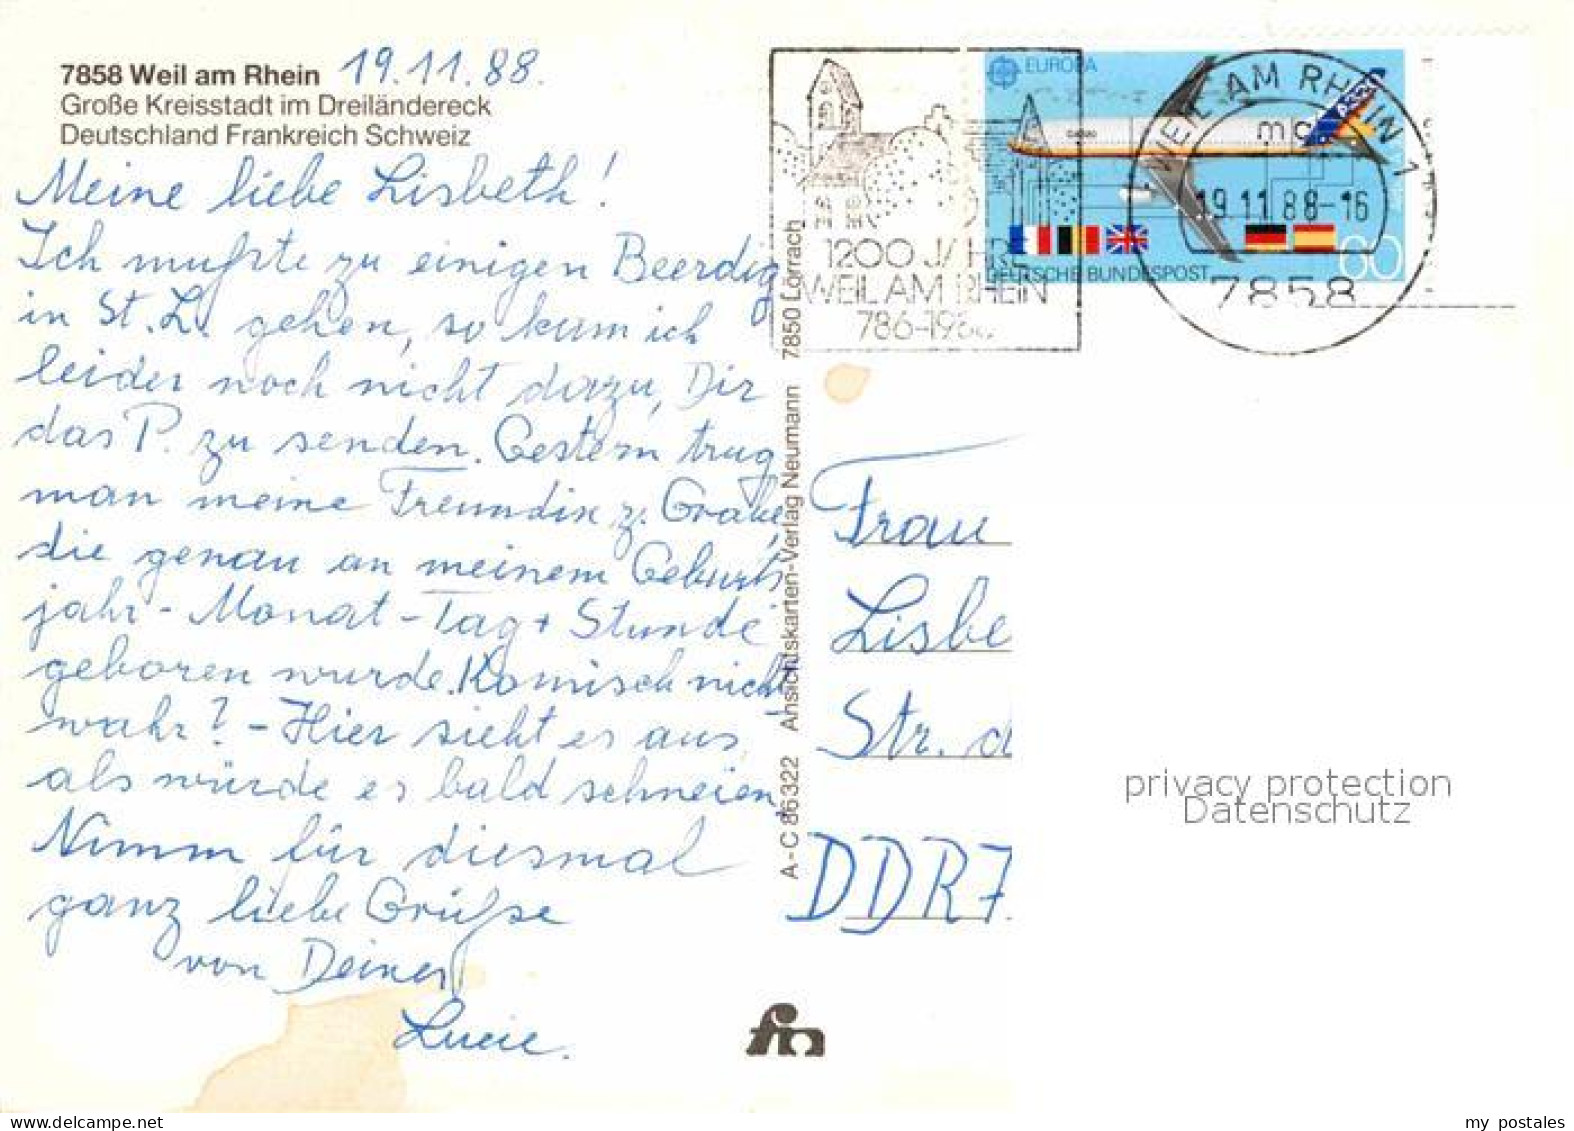 7858 Weil am Rhein 19.11.88.
Große Kreisstadt im Dreiländereck
Deutschland Frankreich Schweiz
Meine liebe Lisbeth!
Ich mußte zu einigen Beerdig
in St. L. gehen, so kam ich
leider noch nicht dazu, Dir
das P. zu senden. Gestern trug
man meine Freundin z. Grabe,
die genau an meinem Geburts
jahr - Monat - Tag + Stunde
geboren wurde. Komisch nicht
wahr? - Hier sieht es aus
als würde es bald schneien,
Nimm für diesmal
ganz liebe Grüße
von Deiner
Lucie.
A-C 86322 Ansichtskarten-Verlag Neumann 7850 Lörrach
fn
1200 JAHRE
WEIL AM RHEIN
786-1986
EUROPA
DEUTSCHE BUNDESPOST
60
WEIL AM RHEIN 1
19.11.88-16
7858
Frau
Lisbe
Str. d
DDR7
privacy protection
Datenschutz
my postales